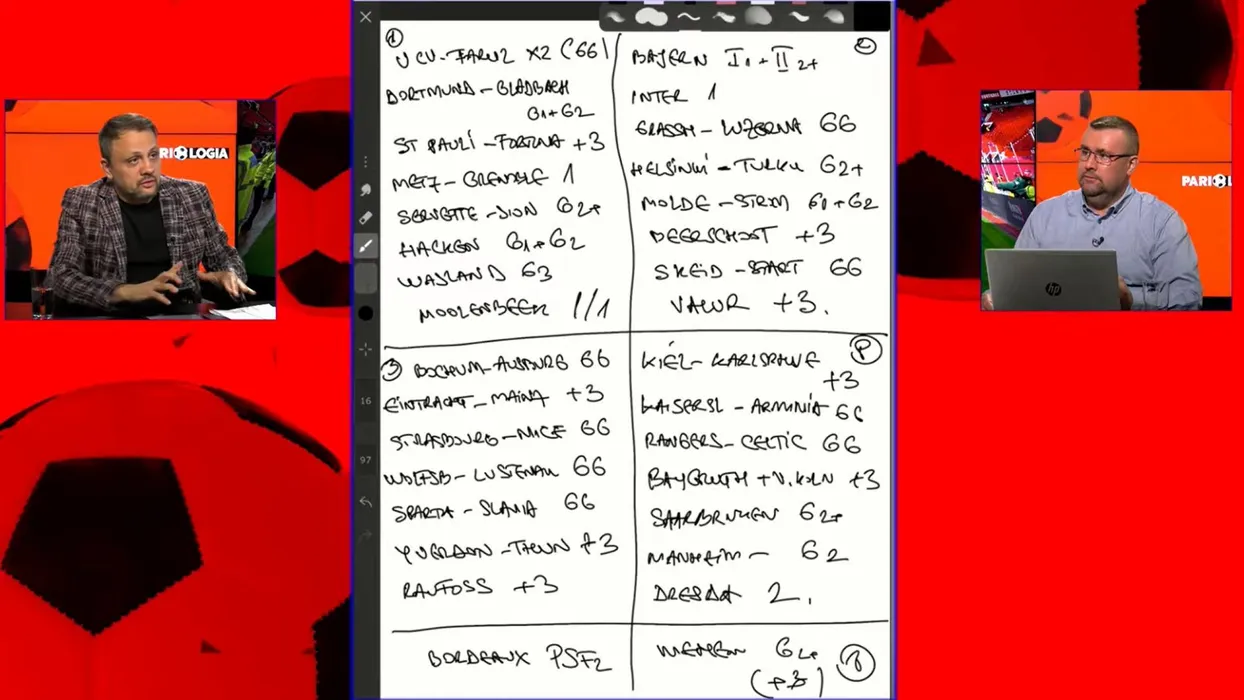 RI LOGIA
PARI L
hp
16
97
1
U CV. FARUL X2 (GG)
DORTMUND - GLADBACH
G1+G2
ST PAULI - FORTUNA +3
METZ - GRENOBLE 1
SERVETTE - SION G2+
HACKEN G1+G2
WASLAND G3
MOOLENBEEK 1/1
2
BAYERN I1 + II2+
INTER 1
GRASSH - LUZERNA GG
HELSINKI - TURKU G2+
MOLDE - STROM G1+G2
BEERSCHOT +3
SKEID - START GG
VALUR +3.
3
BOCHUM - AUSBURG GG
EINTRACHT - MAINZ +3
STRASBOURG - NICE GG
WOLFSB - LUSTENAU GG
SPARTA - SLAVIA GG
YVERDON - THUN +3
RAUFOSS +3
P
KIEL - KARLSRUHE
+3
KAISERSL - ARMINIA GG
RANGERS - CELTIC GG
BAYREUTH + V. KOLN +3
SAARBRUKEN G2+
MANHEIM - G2
DRESDA 2.
BORDEAUX PSF2
MEPPEN G2+
(+3)